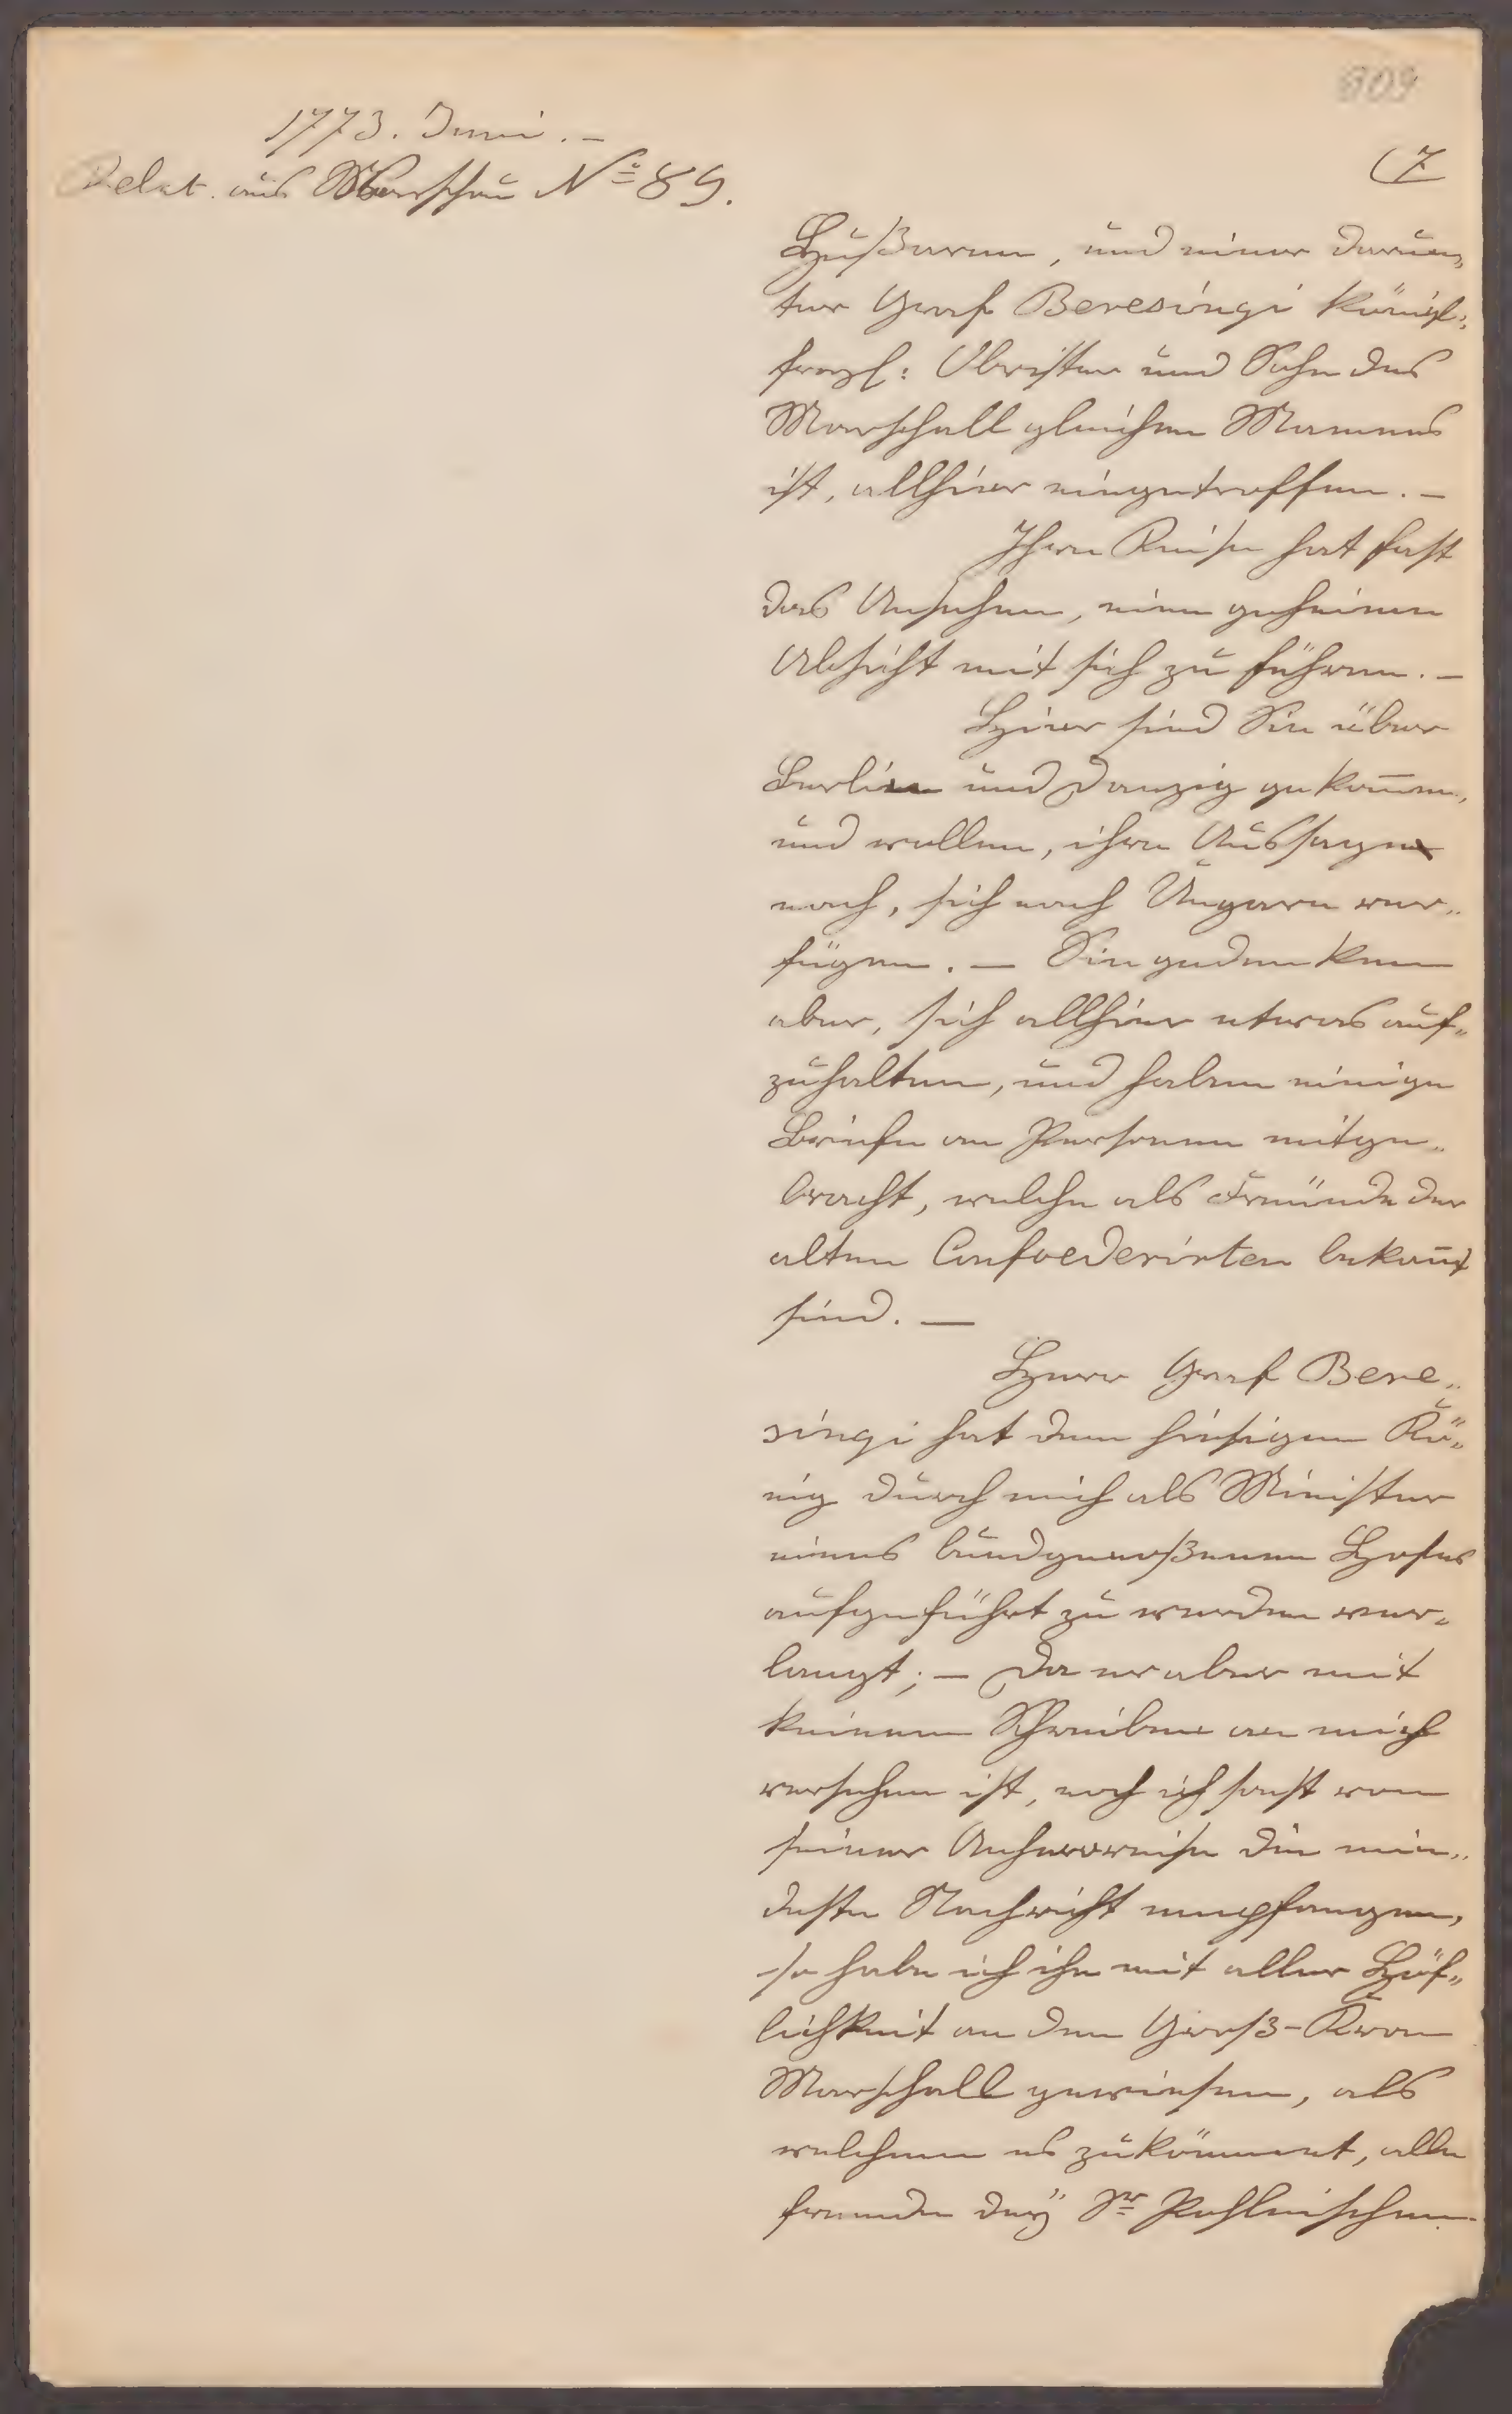 809
1773. Juni. —
Relat. aus Warschau No 89.
(7
Hußaren, und einer darun„
ter Graf Beresingi königl:
franzl: Obrister und Sohn des
Marschall gleichen Namens
ist, allhier eingetroffen. —
Ihre Reise hat fast
das Ansehen, eine geheime
Absicht mit sich zu führen. —
Hier sind Sie über
Berlin und Danzig gekom̄en,
und wollen, ihre Aussage
nach, sich nach Ungarn ver„
fügen. — Sie gedenken
aber, sich allhier etwas auf„
zuhalten, und haben einige
Briefe an Personen mitge„
bracht, welche als Freünde der
alten Confoederirten bekan̄t
sind. —
Herr Graf Bere„
singi hat dem hiesigen Kö„
nig durch mich als Minister
eines bundgenoßenen Hofes
aufgeführt zu werden ver„
langt; — Da er aber mit
keinem Schreiben an mich
versehen ist, noch ich sonst von
seiner Anherreise die min„
deste Nachricht empfangen,
so habe ich ihn mit aller Höf„
lichkeit an den Groß-Kron
Marschall gewiesen, als
welchem es zukömmet, alle
fremde beÿ Sr Pohlnischen